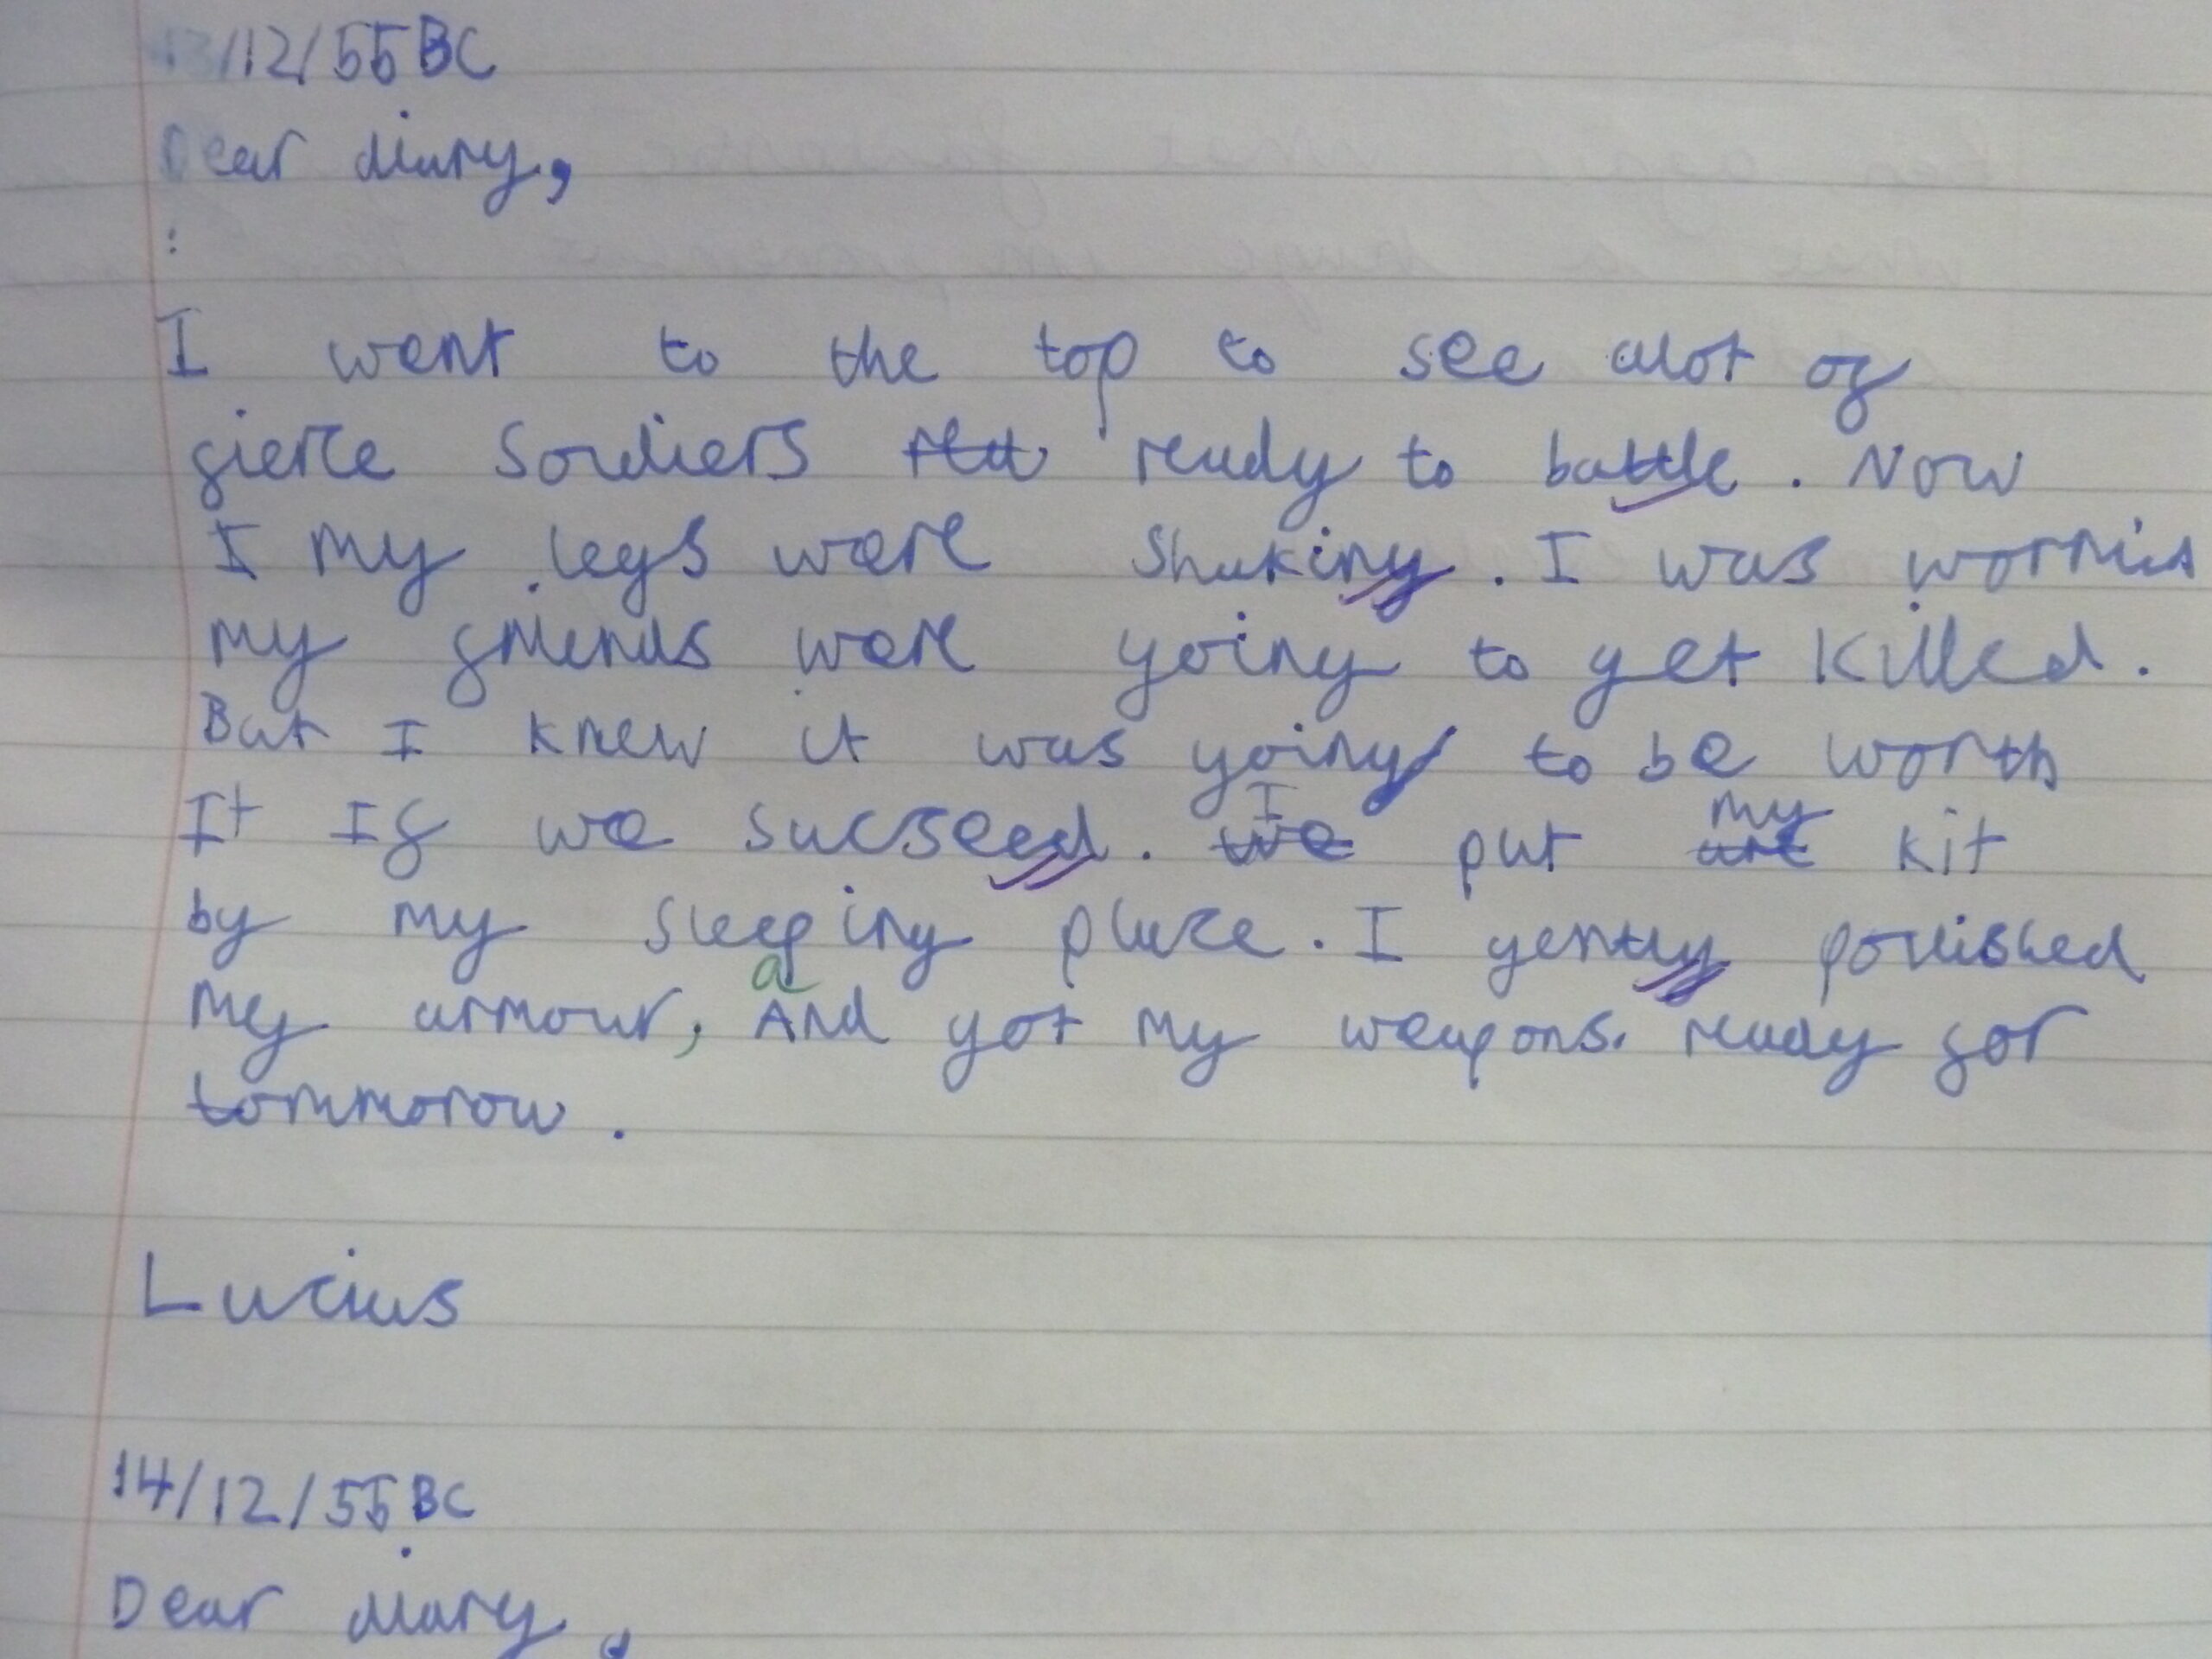 13/12/55BC
Dear diary,
:
I went to the top to see alot of
fierce Soldiers ready to battle. Now
I my legs were Shaking. I was worried
my friends were going to get killed.
But I knew it was going to be worth
It If we sucseed. I put my kit
by my sleeping place. I gently polished
my armour, and got my weapons. ready for
tommorow.
Lucius
14/12/55BC
Dear diary,